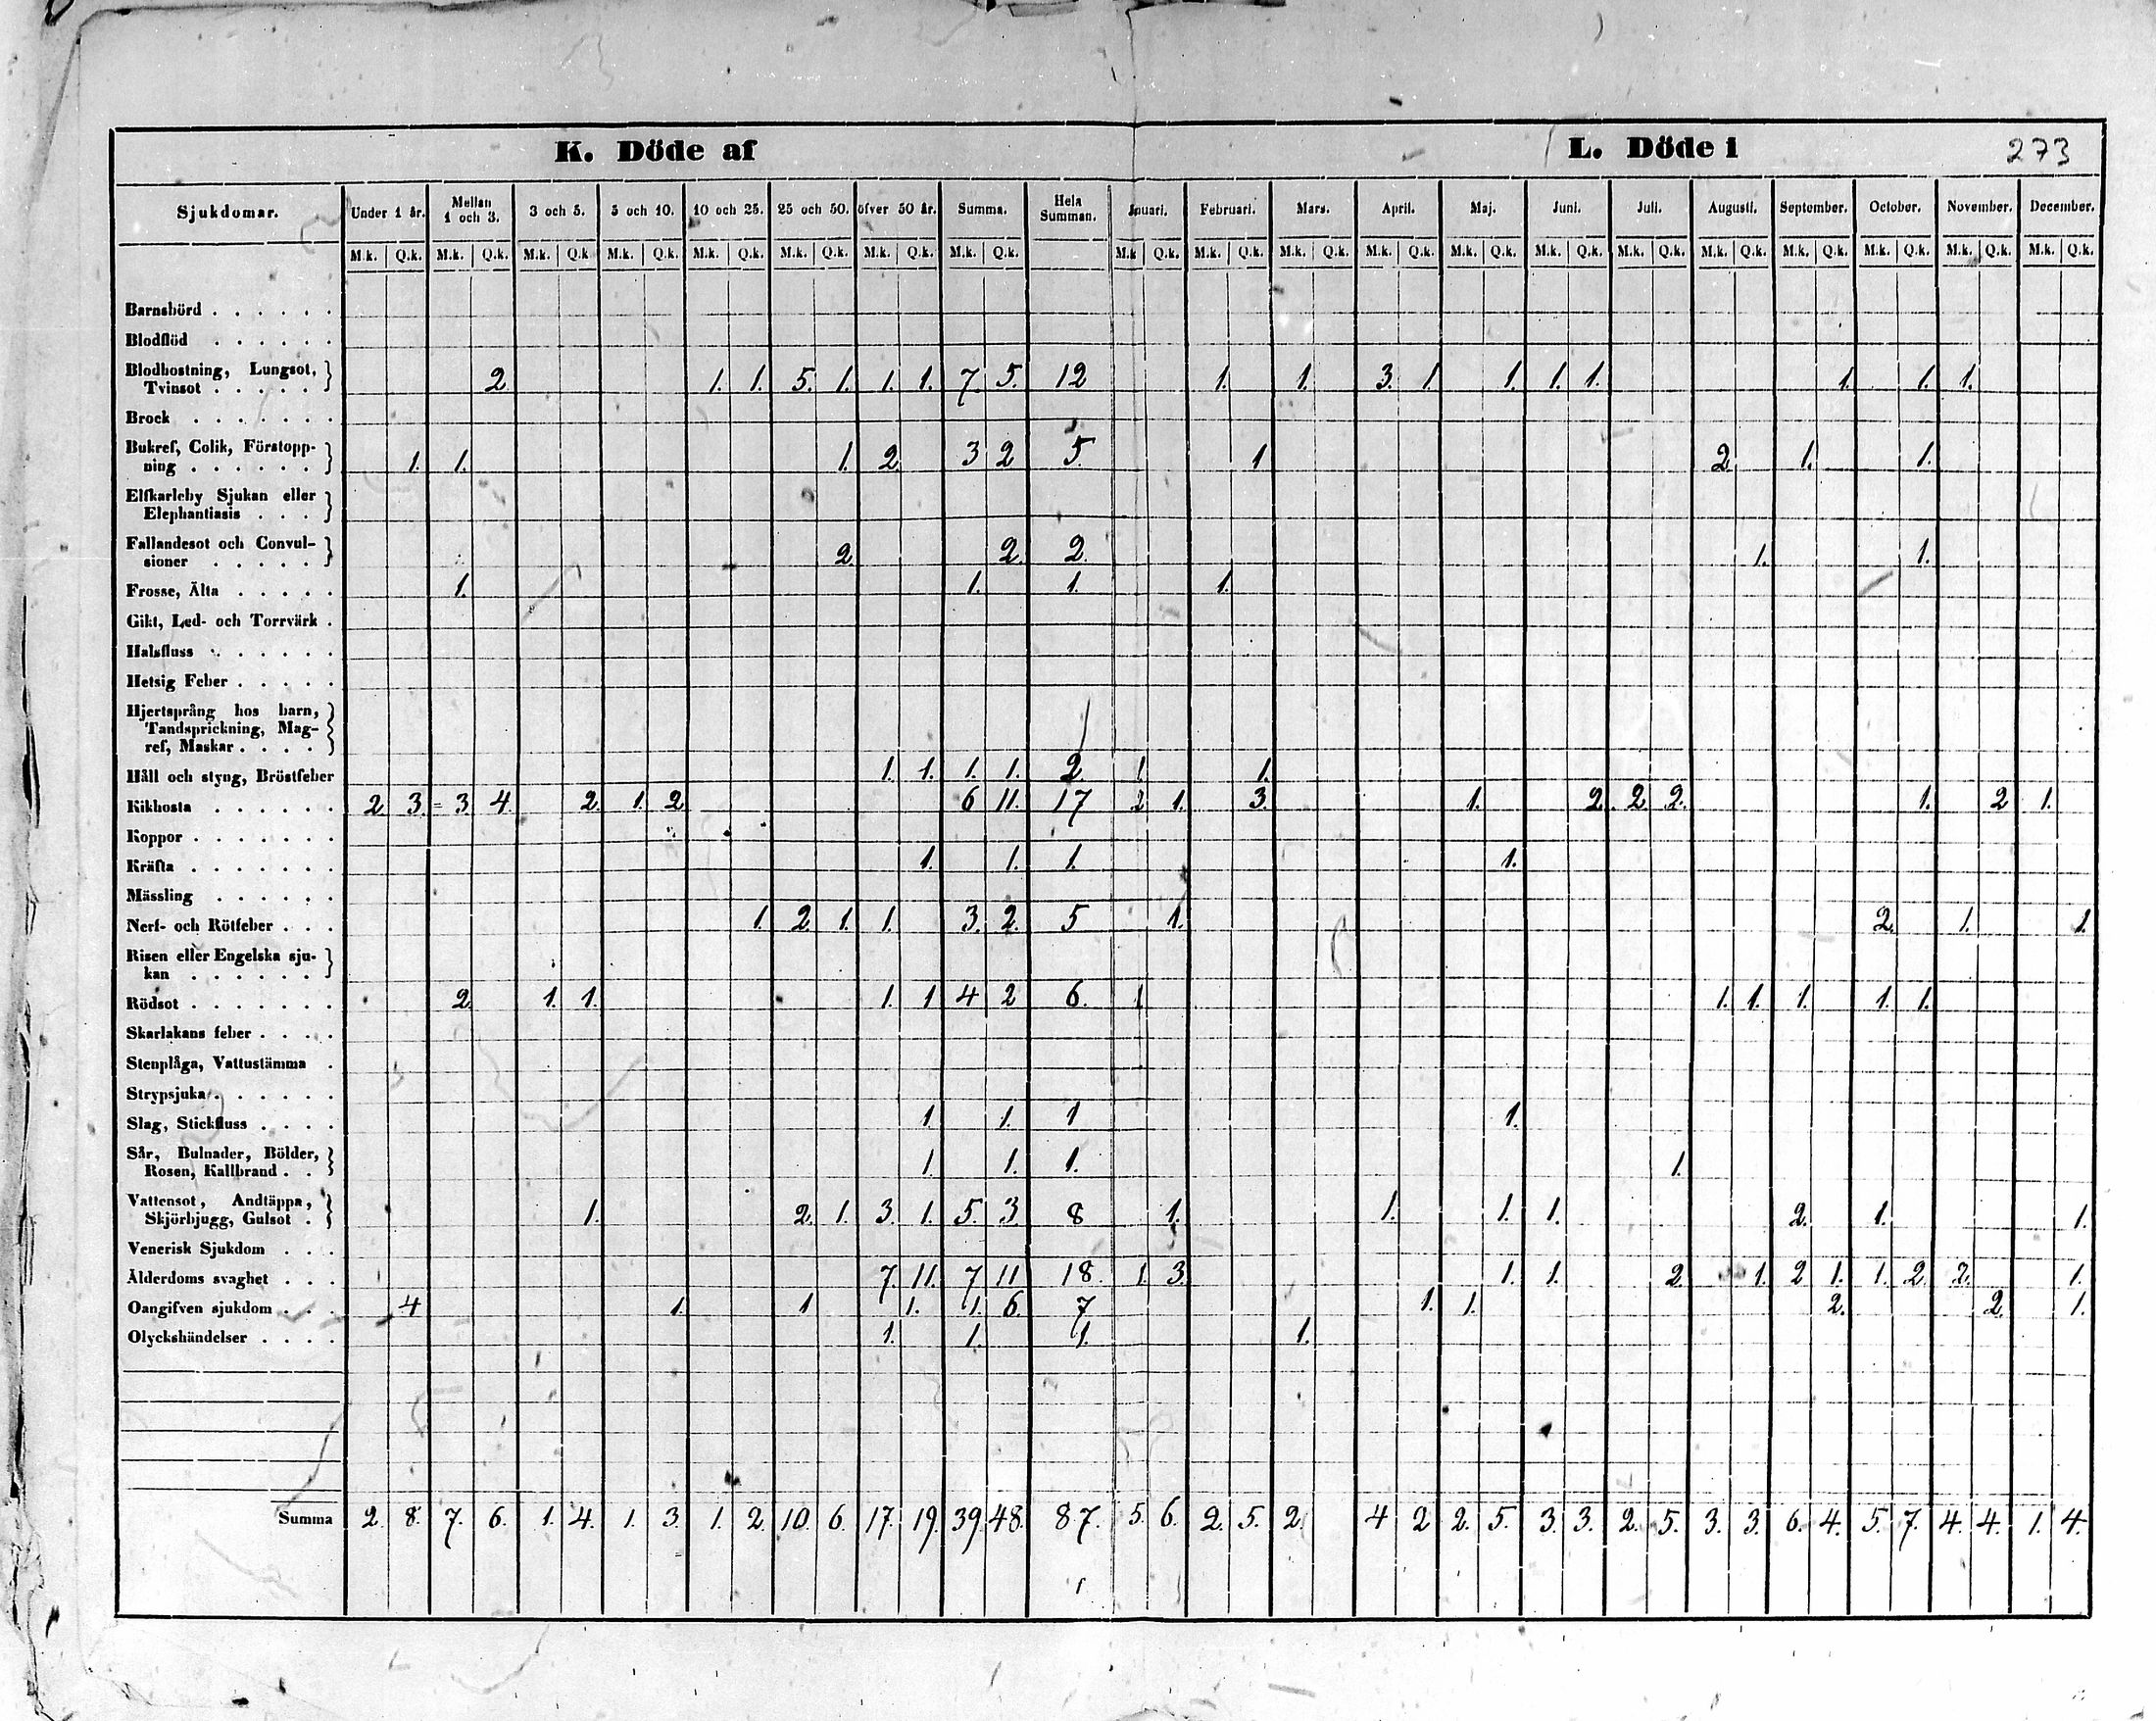 K. Döde af L. Döde i 273
Sjukdomar. Under 1 år. Mellan 1 och 3. 3 och 5. 5 och 10. 10 och 25. 25 och 50. öfver 50 år. Summa. Hela Summan. Januari. Februari. Mars. April. Maj. Juni. Juli. Augusti. September. October. November. December.
M.k. Q.k. M.k. Q.k. M.k. Q.k M.k. Q.k. M.k. Q.k. M.k. Q.k. M.k. Q.k. M.k. Q.k. M.k Q.k. M.k. Q.k. M.k. Q.k. M.k. Q.k. M.k. Q.k. M.k. Q.k. M.k. Q.k. M.k. Q.k. M.k. Q.k. M.k. Q.k. M.k. Q.k. M.k. Q.k.
Barnsbörd . . . . . .
Blodflöd . . . . . .
Blodhostning, Lungsot,
Tvinsot . . . . . 2 1. 1. 5. 1. 1. 1. 7. 5. 12 1. 1. 3. 1. 1. 1. 1. 1. 1. 1.
Brock . . . . . . .
Bukref, Colik, Förstopp-
ning . . . . . . 1. 1. 1. 2 3 2 5. 1 2 1. 1.
Elfkarleby Sjukan eller
Elephantiasis . . .
Fallandesot och Convul-
sioner . . . . . 2 2. 2. 1. 1.
Frosse, Älta . . . . . 1. 1. 1. 1.
Gikt, Led- och Torrvärk .
Halsfluss . . . . . .
Hetsig Feber . . . . .
Hjertsprång hos barn,
Tandsprickning, Mag-
ref, Maskar . . . .
Håll och styng, Bröstfeber 1. 1. 1. 1. 2 1. 1.
Kikhosta . . . . . . 2 3. 3. 4. 2. 1. 2 6 11. 17 2 1. 3. 1. 2. 2. 2. 1. 2 1.
Koppor . . . . . . .
Kräfta . . . . . . . 1. 1. 1. 1.
Mässling . . . . . .
Nerf- och Rötfeber . . . 1. 2. 1. 1. 3. 2. 5 1. 2. 1. 1.
Risen eller Engelska sju-
kan . . . . . .
Rödsot . . . . . . . 2. 1. 1. 1. 1 4 2 6. 1 1. 1. 1. 1. 1.
Skarlakans feber . . . .
Stenplåga, Vattustämma .
Strypsjuka . . . . . .
Slag, Stickfluss . . . . 1 1. 1 1.
Sår, Bulnader, Bölder,
Rosen, Kallbrand . . 1. 1. 1. 1.
Vattensot, Andtäppa,
Skjörbjugg, Gulsot . 1. 2. 1. 3. 1. 5. 3 8 1. 1. 1. 1. 2. 1. 1.
Venerisk Sjukdom . . .
Ålderdoms svaghet . . . 7. 11. 7 11 18. 1. 3. 1. 1. 2. 1. 2 1. 1. 2. 2. 1.
Oangifven sjukdom . . . 4 1. 1 1. 1. 6. 7 1. 1. 2. 2. 1.
Olyckshändelser . . . . 1. 1. 1. 1.
Summa 2. 8. 7. 6. 1. 4. 1. 3. 1. 2. 10. 6. 17. 19. 39. 48. 87. 5. 6. 2. 5. 2. 4 2 2. 5. 3. 3. 2. 5. 3. 3. 6. 4. 5. 7. 4. 4. 1. 4.